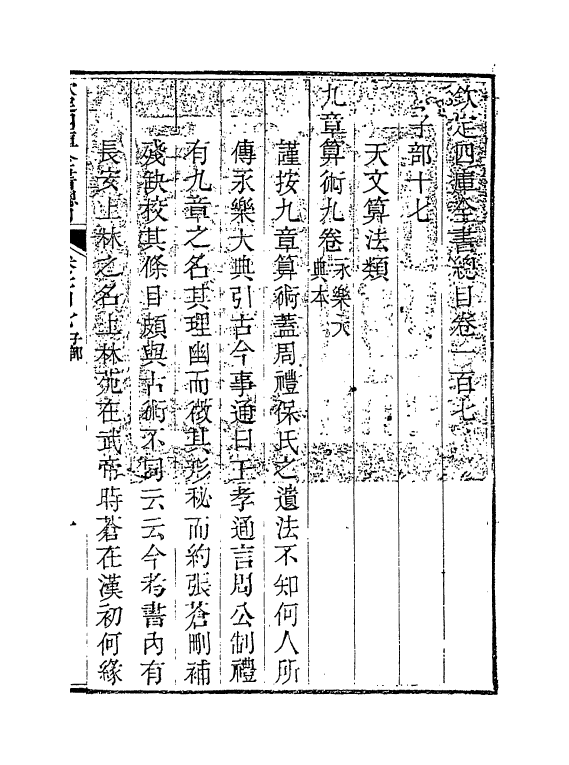 欽定四庫全書總目卷一百七
子部十七
天文算法類
九章算術九卷永樂大典本
謹按九章算術蓋周禮保氏之遺法不知何人所
傳永樂大典引古今事通曰王孝通言周公制禮
有九章之名其理幽而微其形秘而約張蒼刪補
殘缺校其條目頗與古術不同云云今考書內有
長安上林之名上林苑在武帝時蒼在漢初何緣
子部